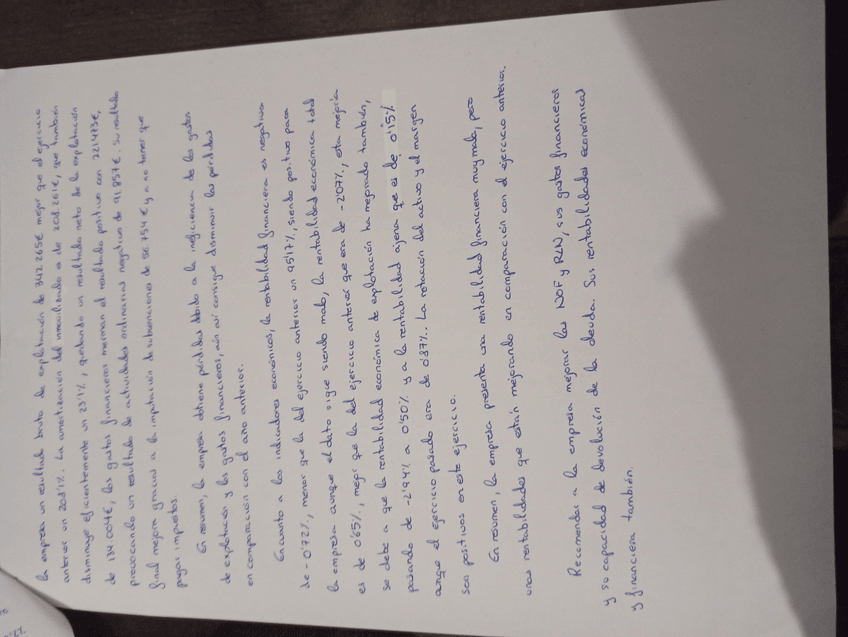 la empresa un resultado bruto de explotación de 342.265€ mejor que el ejercicio
anterior un 208'1%. La amortización del inmovilizado es de 208.261€, que también
disminuye eficientemente un 23'1%, quedando un resultado neto de la explotación
de 134.004€, los gastos financieros merman el resultado positivo con 221.473€,
provocando un resultado de actividades ordinarias negativo de 91.857€. Su resultado
final mejora gracias a la imputación de subvenciones de 50.754€ y a no tener que
pagar impuestos.
En resumen, la empresa obtiene pérdidas debido a la ineficiencia de los gastos
de explotación y los gastos financieros, aún así consigue disminuir las pérdidas
en comparación con el año anterior.
En cuanto a los indicadores económicos, la rentabilidad financiera es negativa
de -0'72%, menor que la del ejercicio anterior un 95'17%, siendo positivo para
la empresa aunque el dato sigue siendo malo, la rentabilidad económica total
es de 0'65%, mejor que la del ejercicio anterior que era de -2'07%, esta mejoría
se debe a que la rentabilidad económica de explotación ha mejorado también,
pasando de -2'94% a 0'50% y a la rentabilidad ajena que es de 0'15%
aunque el ejercicio pasado era de 0'87%. La rotación del activo y el margen
son positivos en este ejercicio.
En resumen, la empresa presenta una rentabilidad financiera muy mala, pero
unas rentabilidades que están mejorando en comparación con el ejercicio anterior.
Recomendar a la empresa mejorar las NOF y RLN, sus gastos financieros
y su capacidad de devolución de la deuda. Sus rentabilidades económicas
y financiera también.